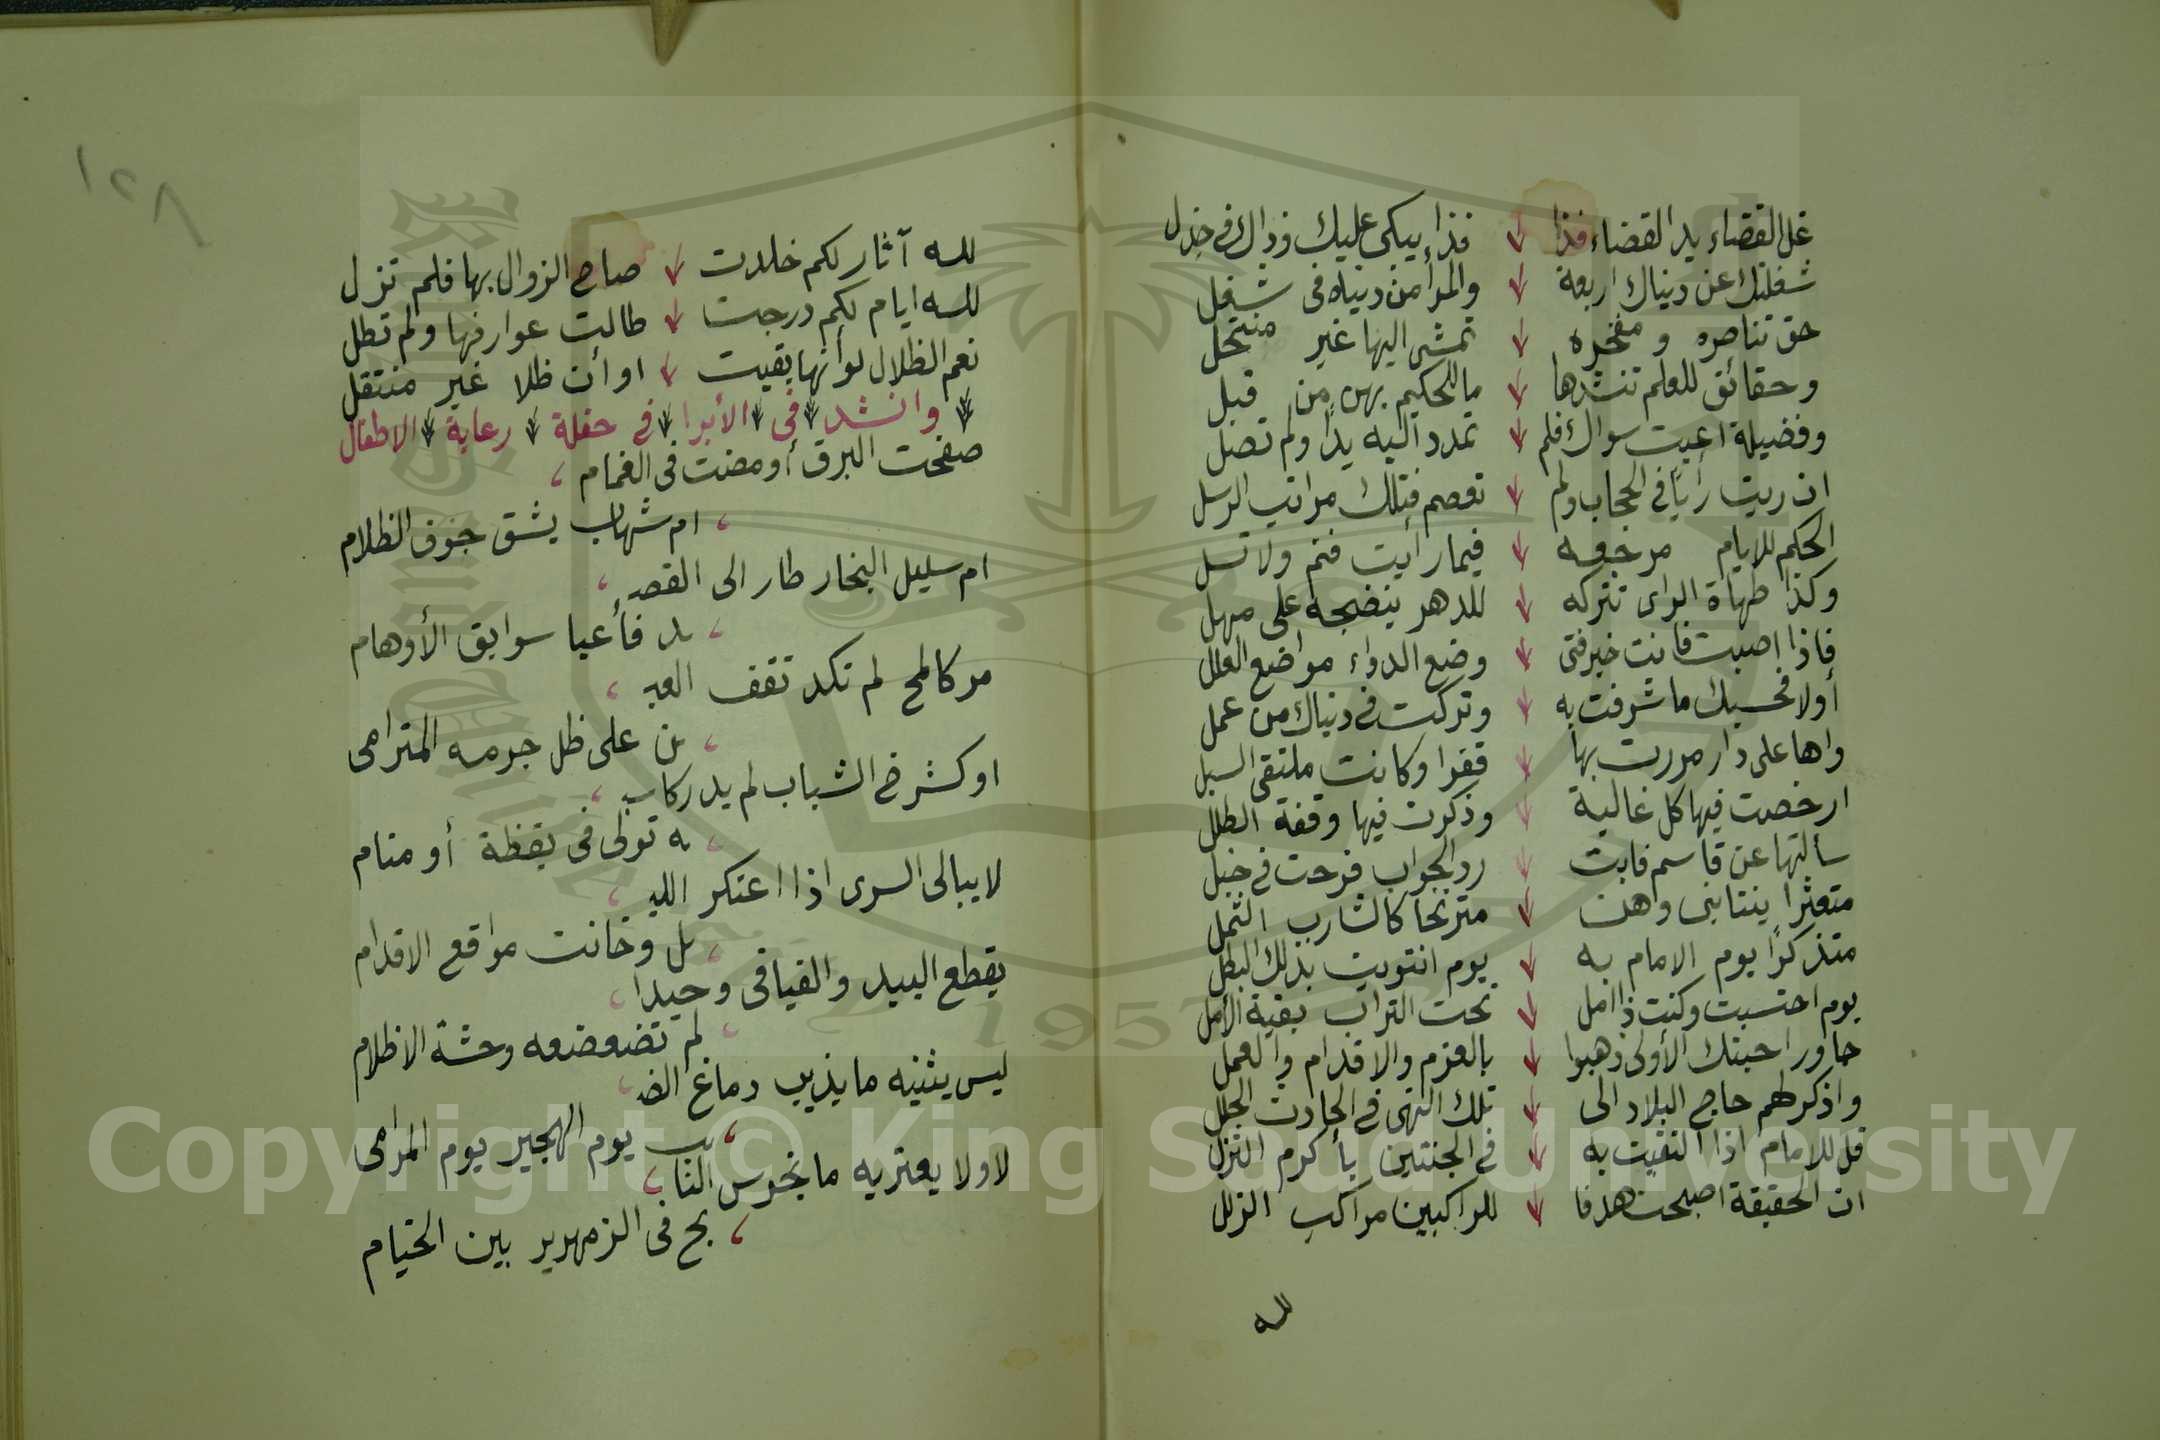 غل القضاء يد القضاء فذا فذا يبكى عليك وذاك في جذل
شغلتك عن دنياك اربعة والمرأ من دنياه فى شغل
حق تناصره ومفخرة تمشى اليها غير منتحل
وحقائق للعلم تنشدها ما للحكيم بهن من قبل
وفضيلة اعيت سواك فلم تمدد اليه يدًا ولم تصل
ان ريت رأيًا في الحجاب ولم تعصم فتلك مراتب الرسل
الحكم للايام مرجعه فيما رأيت فنم ولا تسل
وكذا طهاة الراى تتركه للدهر ينضجه على مهل
فاذا اصبت فانت خير فتى وضع الدواء مواضع العلل
أولا فحسبك ما شرفت به وتركت في دنياك من عمل
واها على دار مررت بها قفرا وكانت ملتقى السبل
ارخصت فيها كل غالية وذكرت فيها وقفة الطلل
سألتها عن قاسم فابت رد الجواب فرحت في خبل
متعثرا ينتابنى وهن مترنحا كالشارب الثمل
متذكرًا يوم الامام به يوم انتويت بذلك البطل
يوم احتسبت وكنت ذا امل تحت التراب بقية الأمل
جاور احبتك الأولى ذهبوا بالعزم والاقدام والعمل
واذكر لهم حاج البلاد الى تلك النهى في الحادث الجلل
قل للامام اذا التقيت به في الجنتين بأكرم النزل
ان الحقيقة اصبحت هدفا للراكبين مراكب الزلل
لله
١٢٨
لله آثار لكم خلدت صاح الزوال بها فلم تزل
لله ايام لكم درجت طالت عوارفها ولم تطل
نعم الظلال لو أنها بقيت او أن ظلا غير منتقل
وانشد في الأبرا في حفلة رعاية الاطفال
صفحت البرق أومضت فى الغمام
ام شهاب يشق جوف الظلام
ام سليل البخار طار الى القصـ
ـد فأعيا سوابق الأوهام
مر كالمح لم تكد تقف العيـ
ـن على ظل جرمه المترامى
او كشرخ الشباب لم يدر كاسيـ
ـه تولى فى يقظة أو منام
لا يبالى السرى اذا اعتكر الليـ
ـل وخانت مواقع الاقدام
يقطع البيد والفيافى وحيدا
لم تضعضعه وحشة الاظلام
ليس يثنيه ما يذيب دماغ الضـ
ـب يوم الهجير يوم المرامى
لا ولا يعتريه ما يخرس النا
بح فى الزمهرير بين الخيام
Copyright © King Saud University
King Saud University
1957